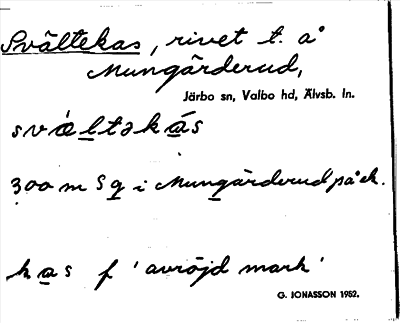 Svältekas, rivet t. å
Mungärderud,
Järbo sn, Valbo hd, Älvsb. ln.
svältəkás
300 m S g i Mungärderud på ek.
kas f 'avröjd mark'
G. JONASSON 1952.